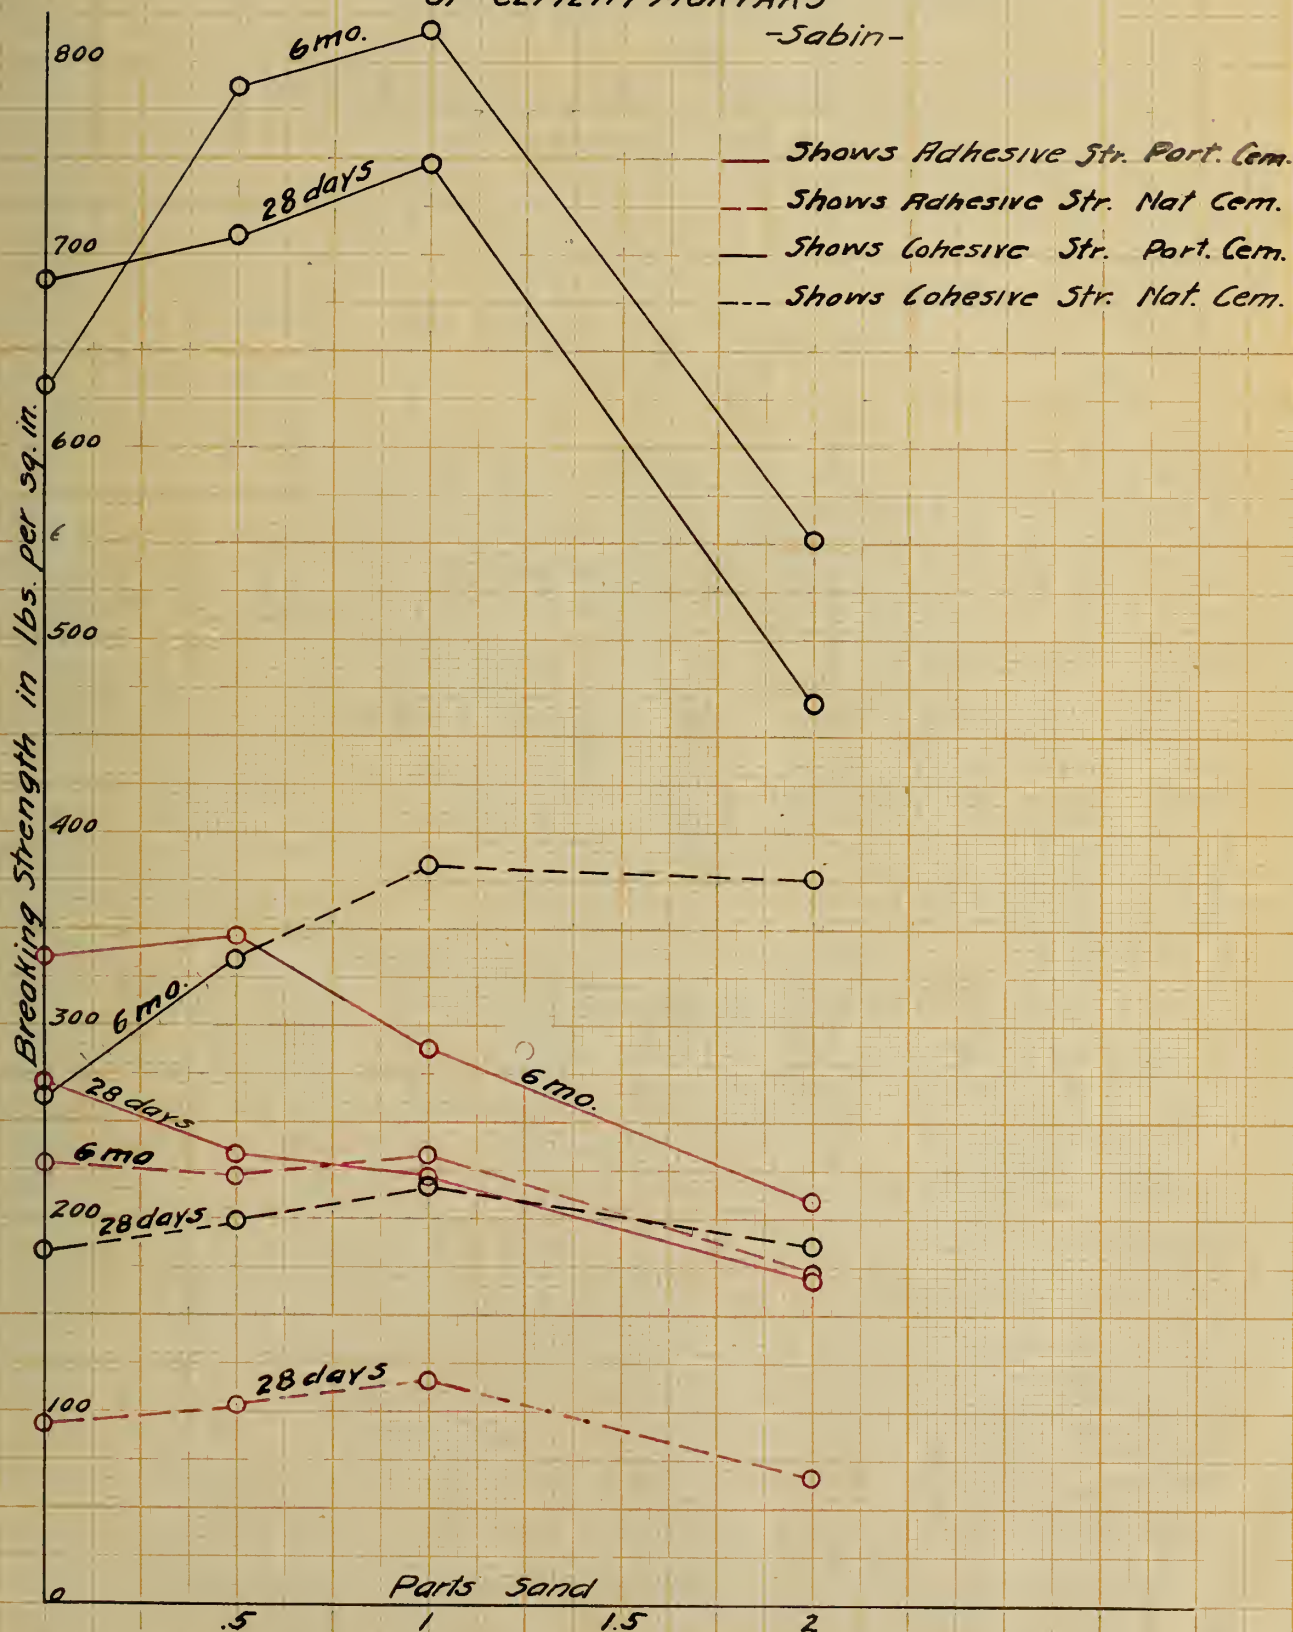 OF CEMENT MORTARS
-Sabin-
Shows Adhesive Str. Port. Cem.
Shows Adhesive Str. Nat Cem.
Shows Cohesive Str. Port. Cem.
Shows Cohesive Str. Nat. Cem.
Breaking Strength in lbs. per sq. in.
800
700
600
500
400
300
200
100
0
6 mo.
28 days
6 mo.
28 days
6 mo.
6 mo
28 days
28 days
Parts Sand
.5 1 1.5 2